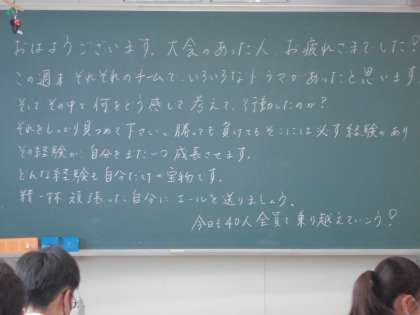 おはようございます。大会のあった人、お疲れさまでした？
この週末 それぞれのチームで、いろいろなドラマがあったと思います
そしてその中で何をどう感じて考えて、行動したのか？
それをしっかり見つめて下さい。勝っても負けてもそこには必ず経験があり
その経験が、自分をまた一つ成長させます。
どんな経験も自分だけの宝物です。
精一杯頑張った自分にエールを送りましょう。
今日も40人全員で乗り越えていこう！